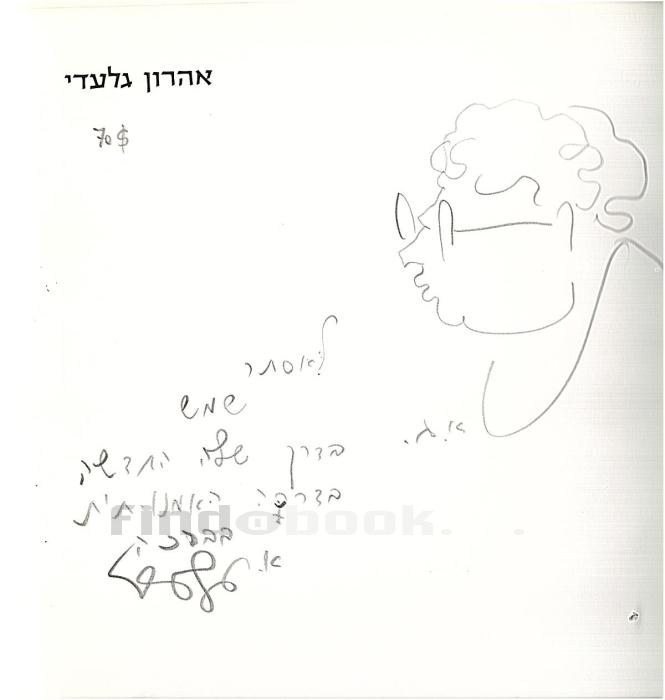 אהרון גלעדי
70$
לאסתר
שמש
א.ג.
בדרך שלה החדשה
בדרכה האמנותית
בברכה
א. גלעדי
findabook.